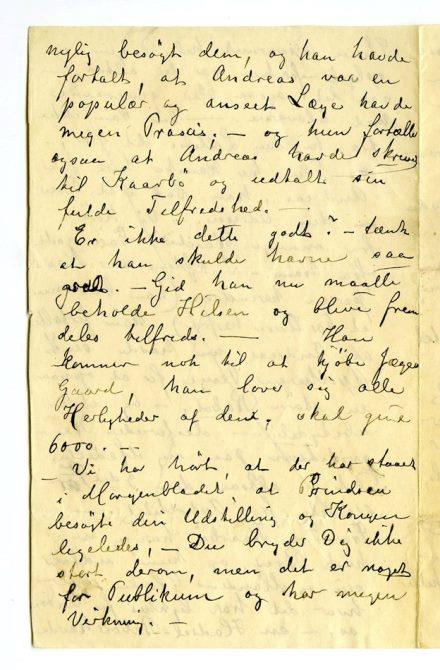 nylig besögt dem, og han havde
fortalt, at Andreas var en
populær og anseet Læge havde
megen Praxis, — og hun fortalte
ogsaa at Andreas havde skrevet
til Kaarbö og udtalt sin
fulde Tilfredshed. —
Er ikke dette godt? — tænk
at han skulde havne saa
godt. — Gid han nu maatte
beholde Hilsen og blive frem
deles tilfreds. — Han
kommer nok til at kjöbe Jæger
Gaard, han lover sig alle
Herligheder af den, skal give
6000. —
Vi har hört, at der har staaet
i Morgenbladet, at Prindsen
besögte din Udstilling og Kongen
ligeledes, — Du bryder Dig ikke
stort derom, men det er noget
for Publikum og har megen
Virkning. —